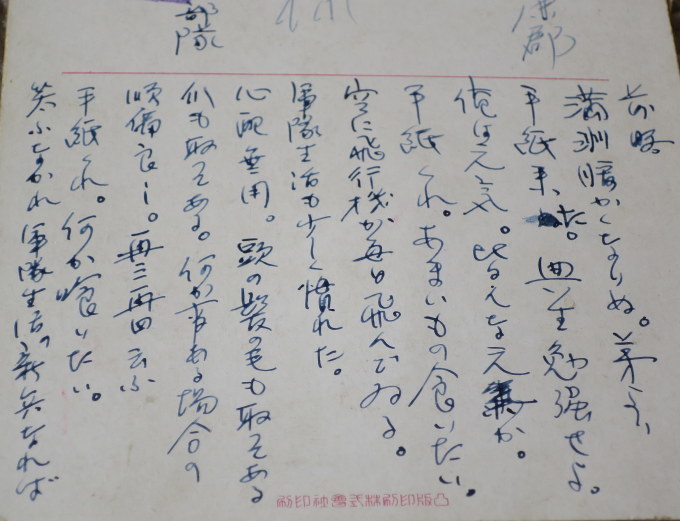 部隊
郡
前略
満洲暖かくなりぬ。弟
手紙来た。勉強せよ。
俺は元気。皆んな元気か。
手紙くれ。あまいもの食いたい。
空に飛行機が毎日飛んでゐる。
軍隊生活も少しく慣れた。
心配無用。頭の髪の毛も取つてある
爪も取つてある。何か事ある場合の
順備良し。再三再四云ふ
手紙くれ。何か喰いたい。
笑ふなかれ軍隊生活の新兵なれば
凸版印刷株式會社印刷